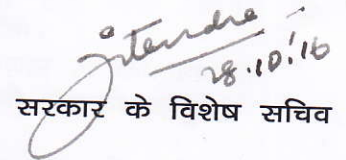 jitendra
28.10.16
सरकार के विशेष सचिव